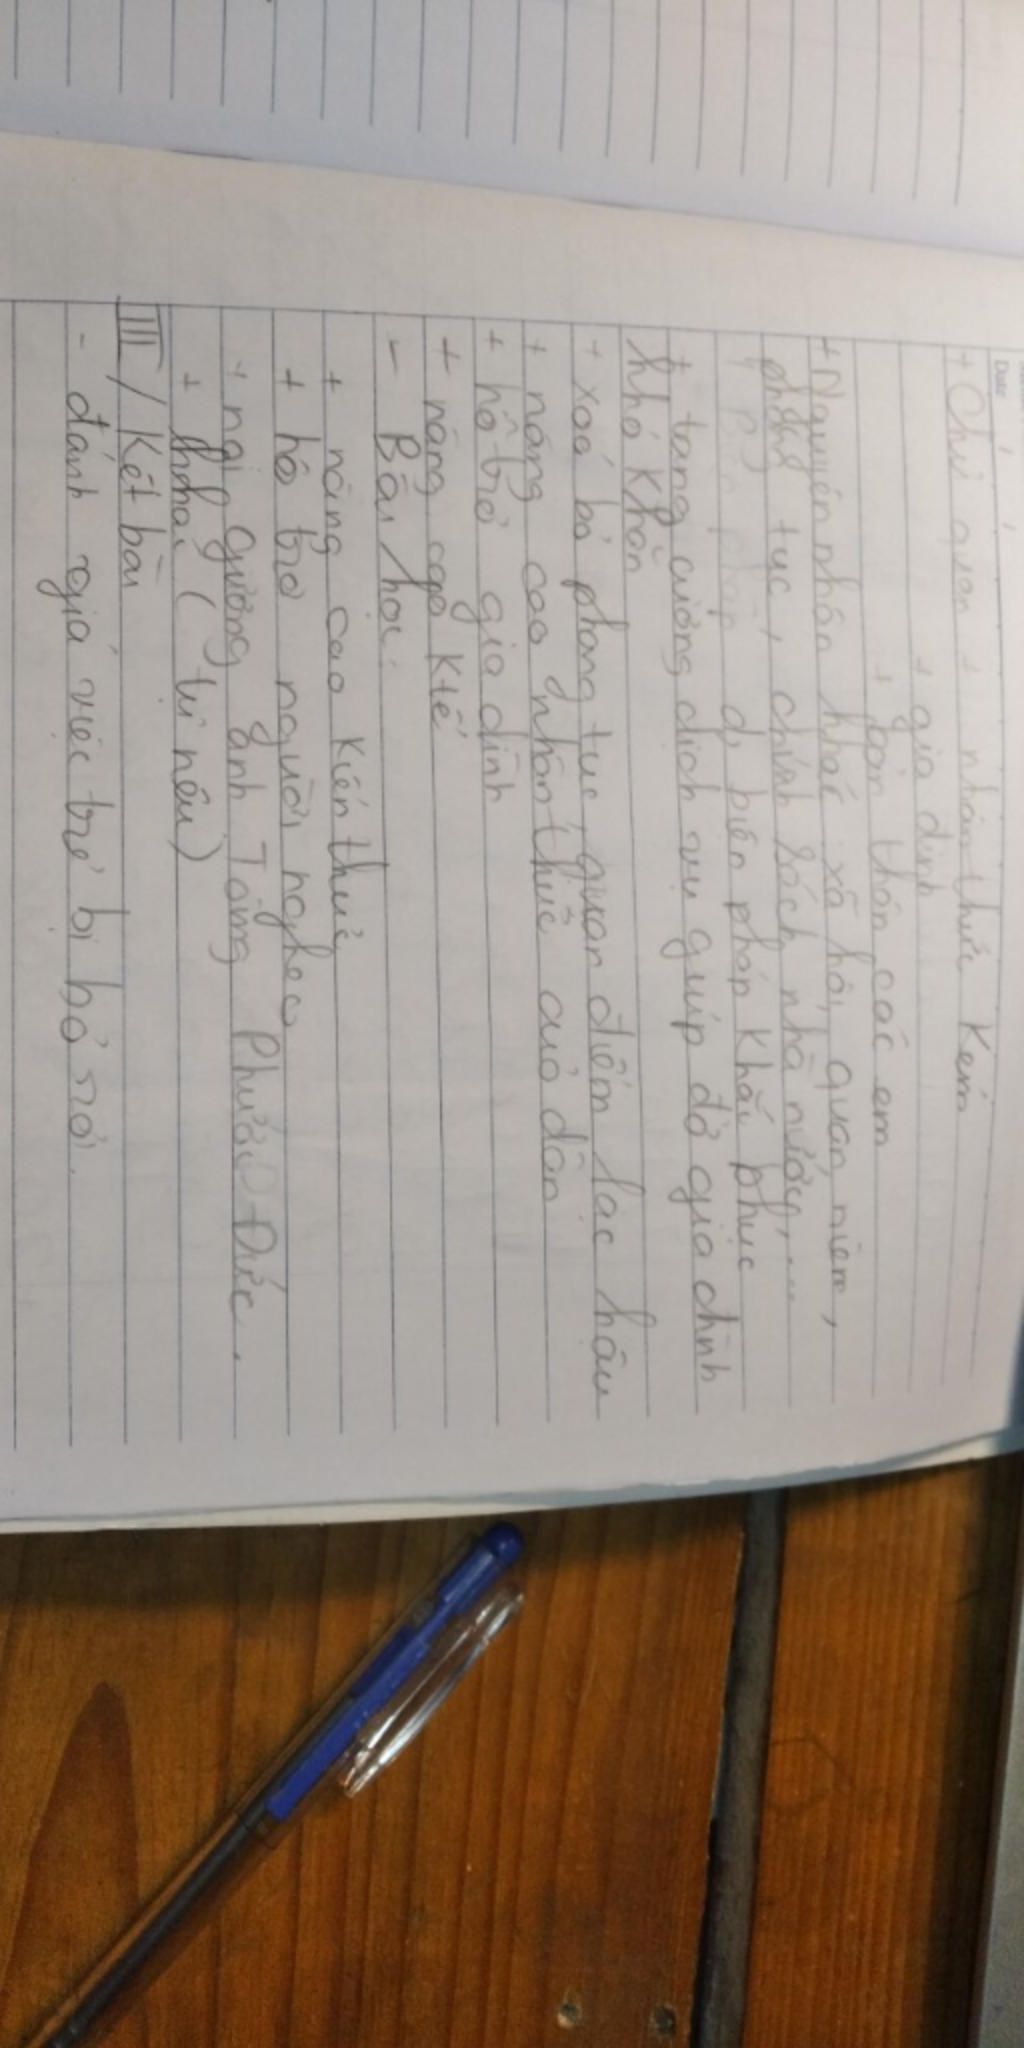 Date
+ Chủ quan + nhận thức Kém
+ gia dình
+ bản thân các em
+ Nguyên nhân khác xã hội, quan niệm,
phong tục, chính sách nhà nước, ...
d, biện pháp khắc phục
+ tang cường dịch vụ giúp đở gia đình
khó khăn
+ xoá bỏ phong tục, quan điểm lạc hậu
+ nâng cao nhân thức cuả dân
+ hỗ trợ gia dình
+ nâng cao Ktế
- Bài học:
+ nâng cao kiến thức
+ hỗ trợ người nghèo
+ gương anh Tòng Phước Đức.
+ (tự nêu)
III / Kết bài
- đánh giá việc trẻ bị bỏ rơi.